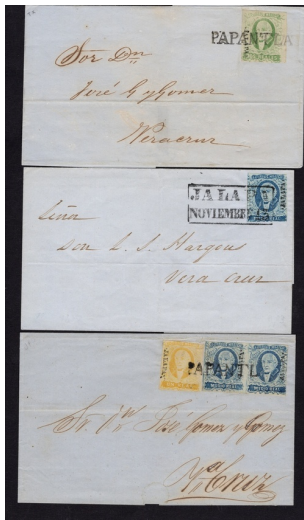 PAPANTLA
Sor Dn
José G y Gomez
Veracruz
JALA
NOVIEMBRE
Señor
Don L. S. Hargous
Vera Cruz
PAPANTL
Sr. Dn. José Gomez y Gomez
Va Cruz